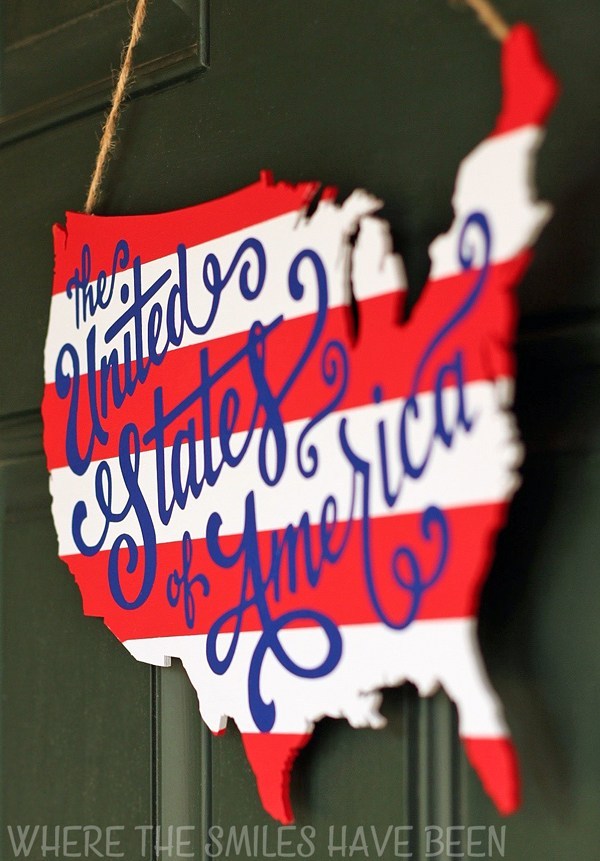 The
United
States
of America
WHERE THE SMILES HAVE BEEN